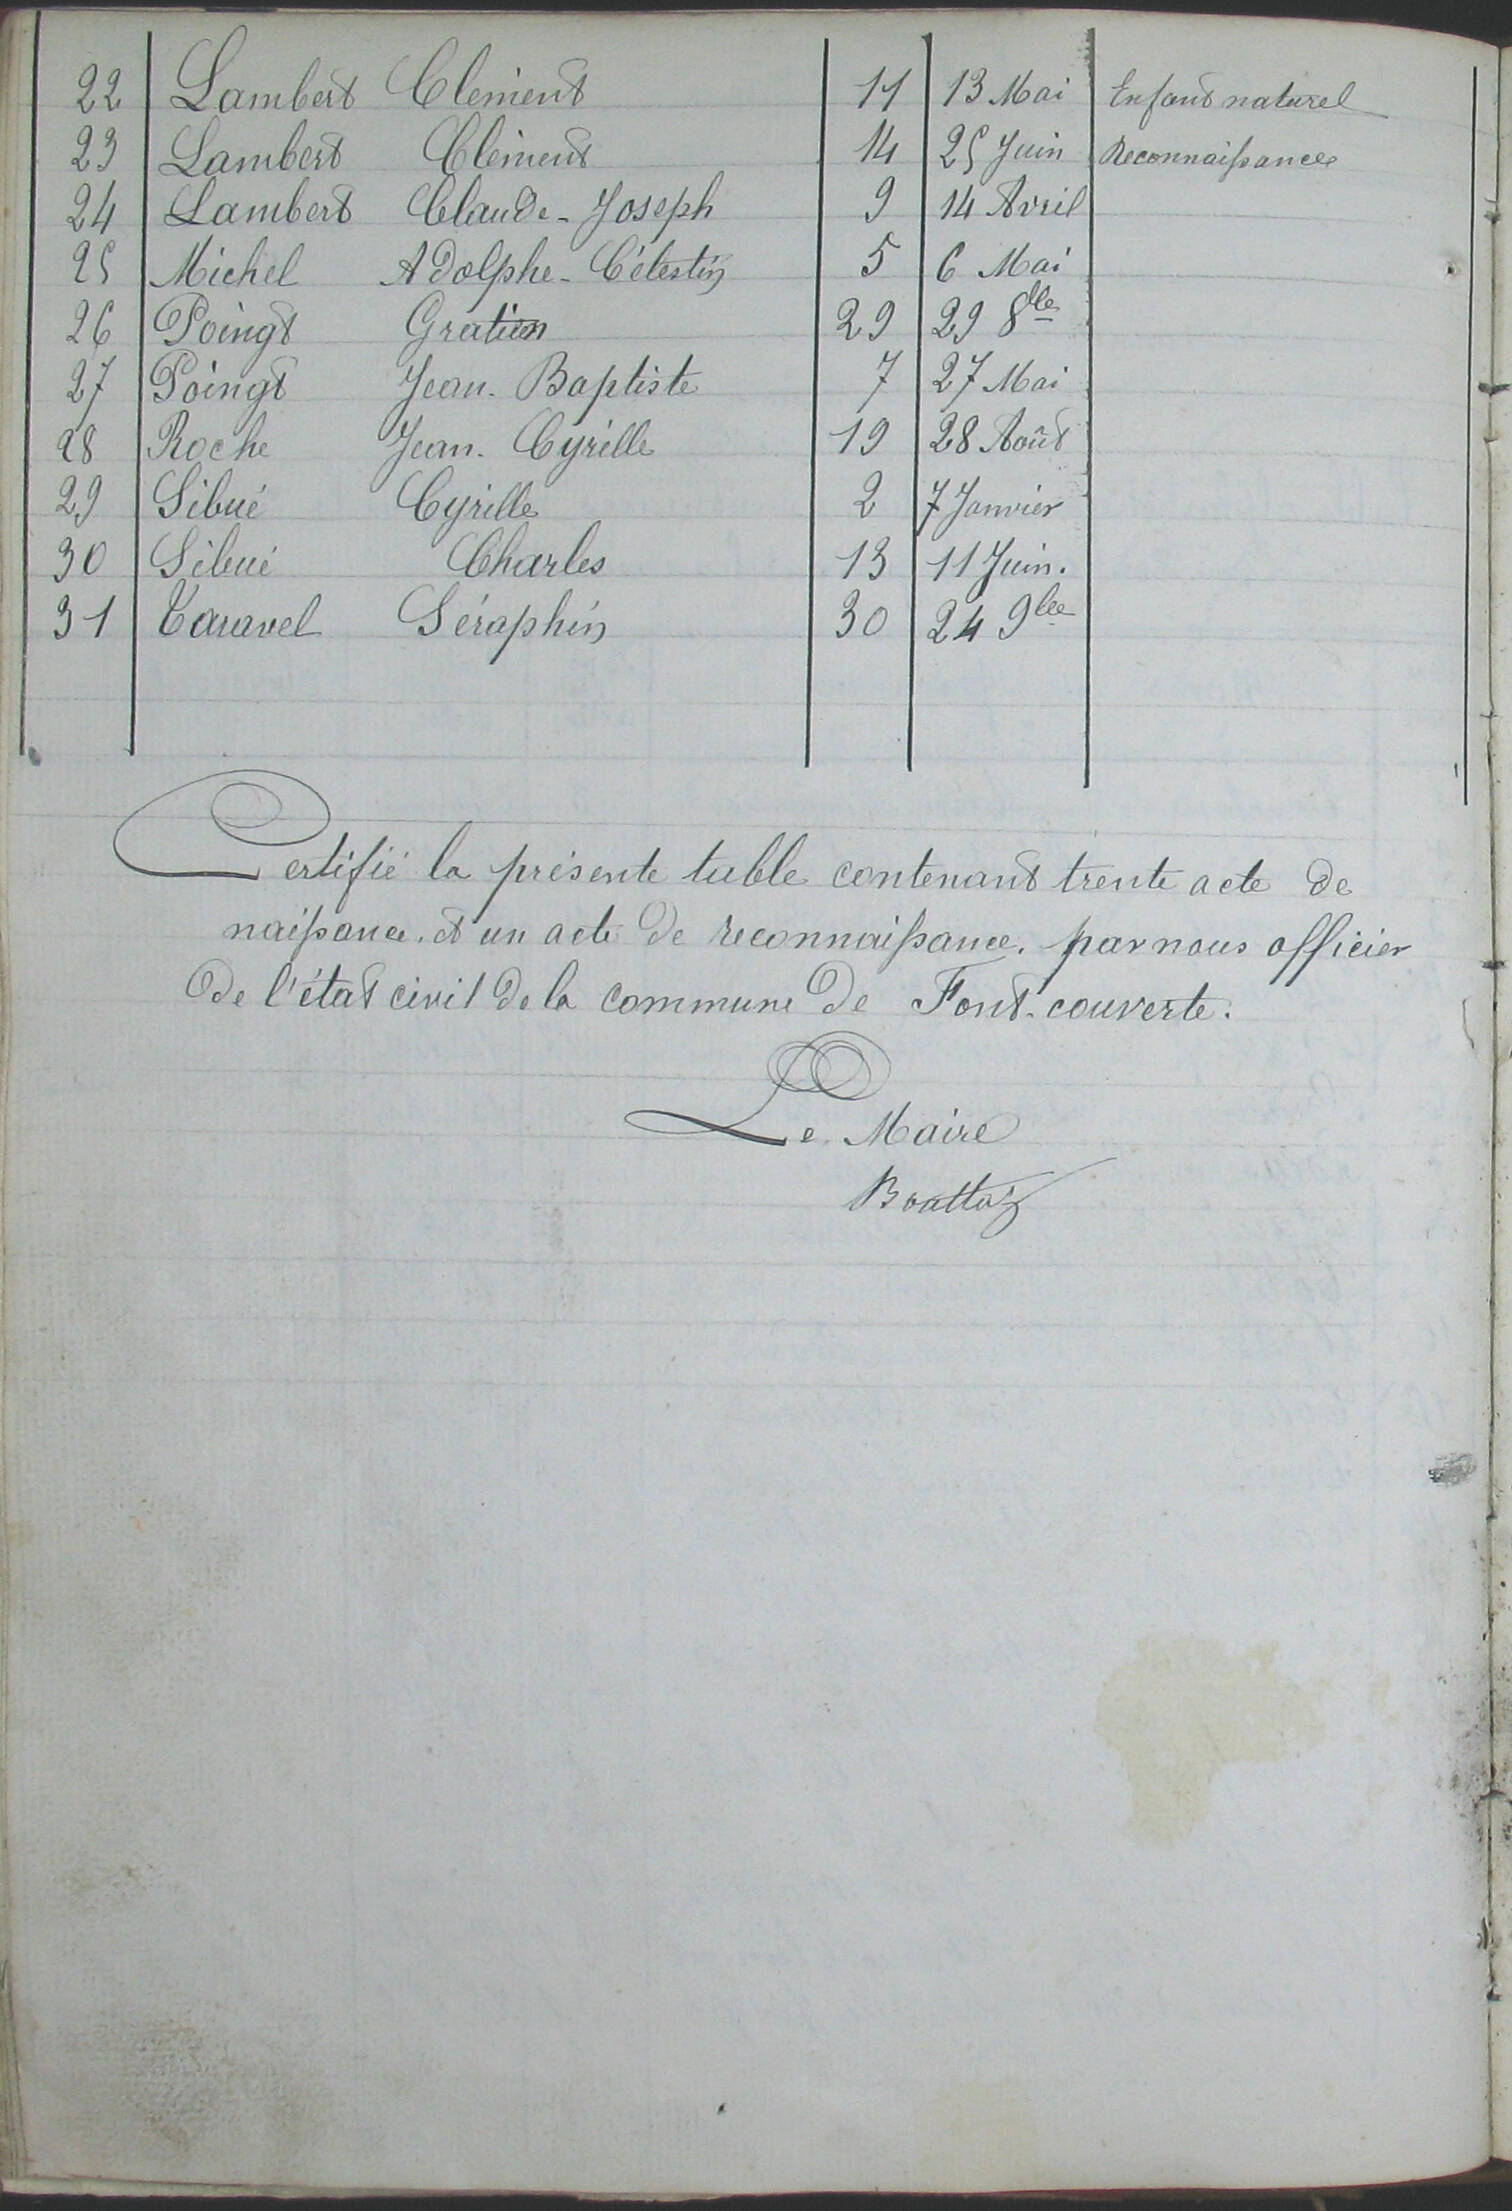 22 Lambert Clément 11 13 Mai Enfant naturel
23 Lambert Clément 14 25 Juin Reconnaissance
24 Lambert Claude-Joseph 9 14 Avril
25 Michel Adolphe-Célestin 5 6 Mai
26 Poingt Gratien 29 29 8bre
27 Poingt Jean-Baptiste 7 27 Mai
28 Roche Jean-Cyrille 19 28 Août
29 Sibué Cyrille 2 7 Janvier
30 Sibué Charles 13 11 Juin.
31 Taravel Séraphin 30 24 9bre
Certifié la présente table contenant trente acte de
naissance, et un acte de reconnaissance, par nous officier
de l'état civil de la commune de Font-couverte.
Le Maire